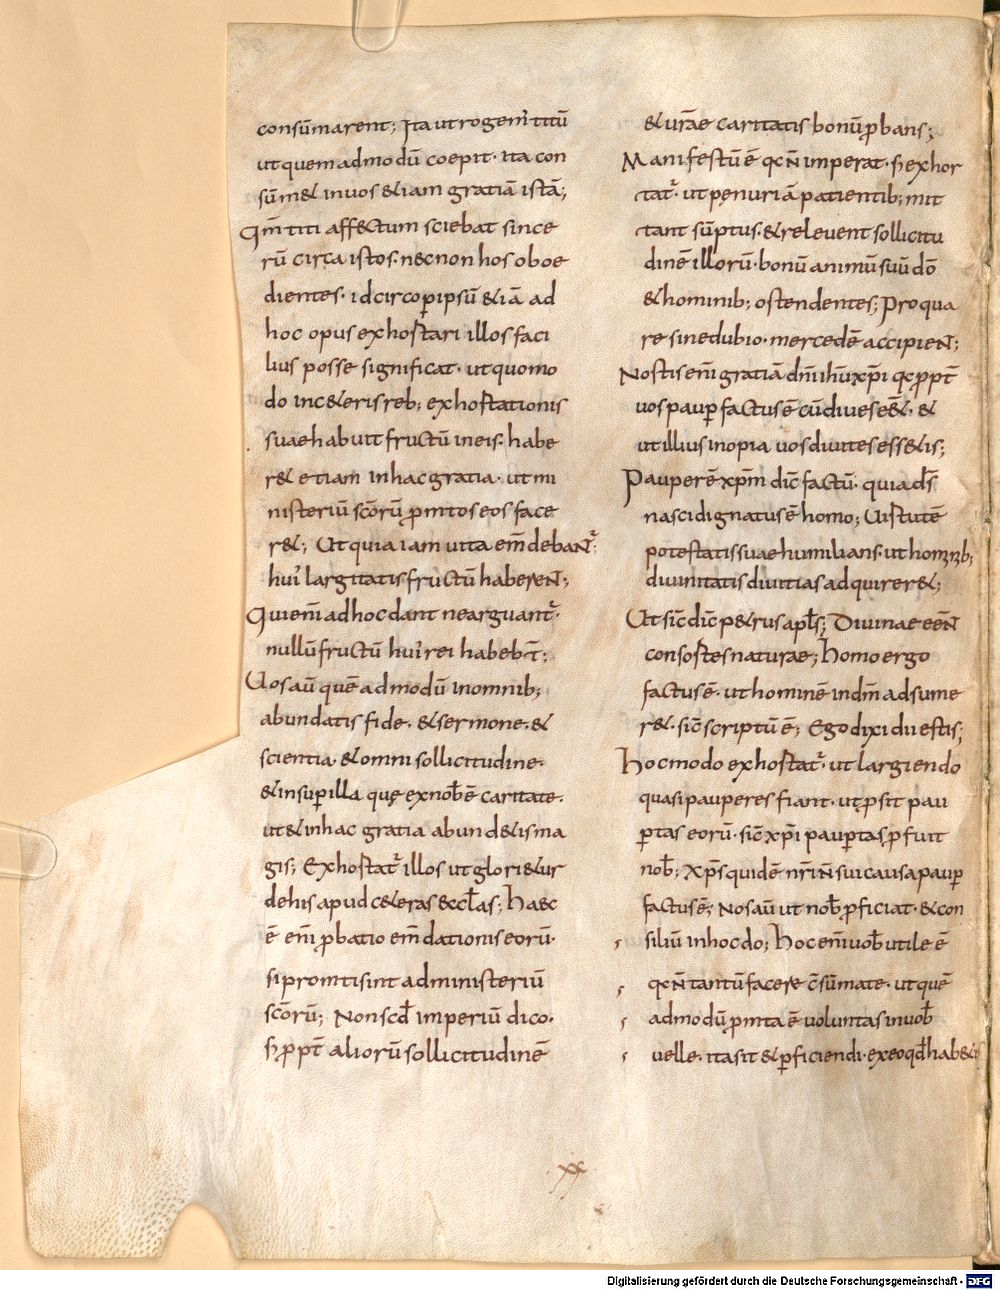 consūmarent; Ita ut rogem' titū
ut quemadmodū coepit· ita con
sūm& in uos &iam gratiā istā;
Qm̄ titi aff&ctum sciebat since
rū circa istos· necnon hos oboe
dientes· idcirco p ipsū &iā ad
hoc opus exhortari illos faci
lius posse significat· ut quomo
do in c&eris reb; exhortationis
suae habuit fructū in eis· habe
r& etiam in hac gratia· ut mi
nisteriū sc̄orū p̄mtos eos face
r&; Ut quia iam uita em̄debaNT̄·
hui' largitatis fructū habereNT;
Qui em̄ ad hoc dant ne arguant̄·
nullū fructū hui' rei habeb̄t;
Uos aū quēadmodū in omnib;
abundatis fide· & sermone· &
scientia & omni sollicitudine·
& insup illa quę ex nob̄ ē caritate·
ut & in hac gratia abund&is ma
gis; Exhortat̄ illos ut glori&ur
de his apud c&eras eccl̄as; Haec
ē em̄ p̄batio em̄dationis eorū·
si promti sint ad ministeriū
sc̄orū; Non scd̄ imperiū dico·
s; p̄pt̄ aliorū sollicitudinē
& urāe caritatis bonū p̄bans;
Manifestū ē qc̄ N̄ imperat· s; exhor
tat̄· ut penuriā patientib; mit
tant sūptus· & releuent sollicitu
dinē illorū· bonū animū suū dō
& hominib; ostendentes; Pro qua
re sine dubio· mercedē accipieNT;
Nostis em̄ gratiā dn̄i ih̄u xp̄i qc̄ p̄pt̄
uos paup factus ē cū diues e&̄· &
ut illius inopia uos diuites ess&is;
Pauperē xp̄m dic̄ factū· quia ds̄
nasci dignatus ē homo; Uirtutē
potestatis suae humilians· ut hominib;
diuinitatis diuitias adquirer&;
Ut sic̄ dic̄ p&rus apl̄s; Diuinae eēNT
consortes naturae; Homo ergo
factus ē· ut hominē in dm̄ adsume
r&· sic̄ scriptū ē; Ego dixi dii estis;
Hoc modo exhortat̄· ut largiendo
quasi pauperes fiant· ut p̄sit pau
ptas eorū· sic̄ xp̄i pauptas p̄fuit
nob̄; Xp̄s quidē nr̄i N̄ sui causa paup
factus ē; Nos aū ut nob̄ p̄ficiat· & con
siliū in hoc do; Hoc em̄ uob̄ utile ē
qc̄ N̄ tantū facere c̄sūmate· ut quē
admodū p̄mta ē uoluntas in uob̄
uelle· ita sit & p̄ficiendi· ex eo qd̄ hab&is
xx
Digitalisierung gefördert durch die Deutsche Forschungsgemeinschaft - DFG